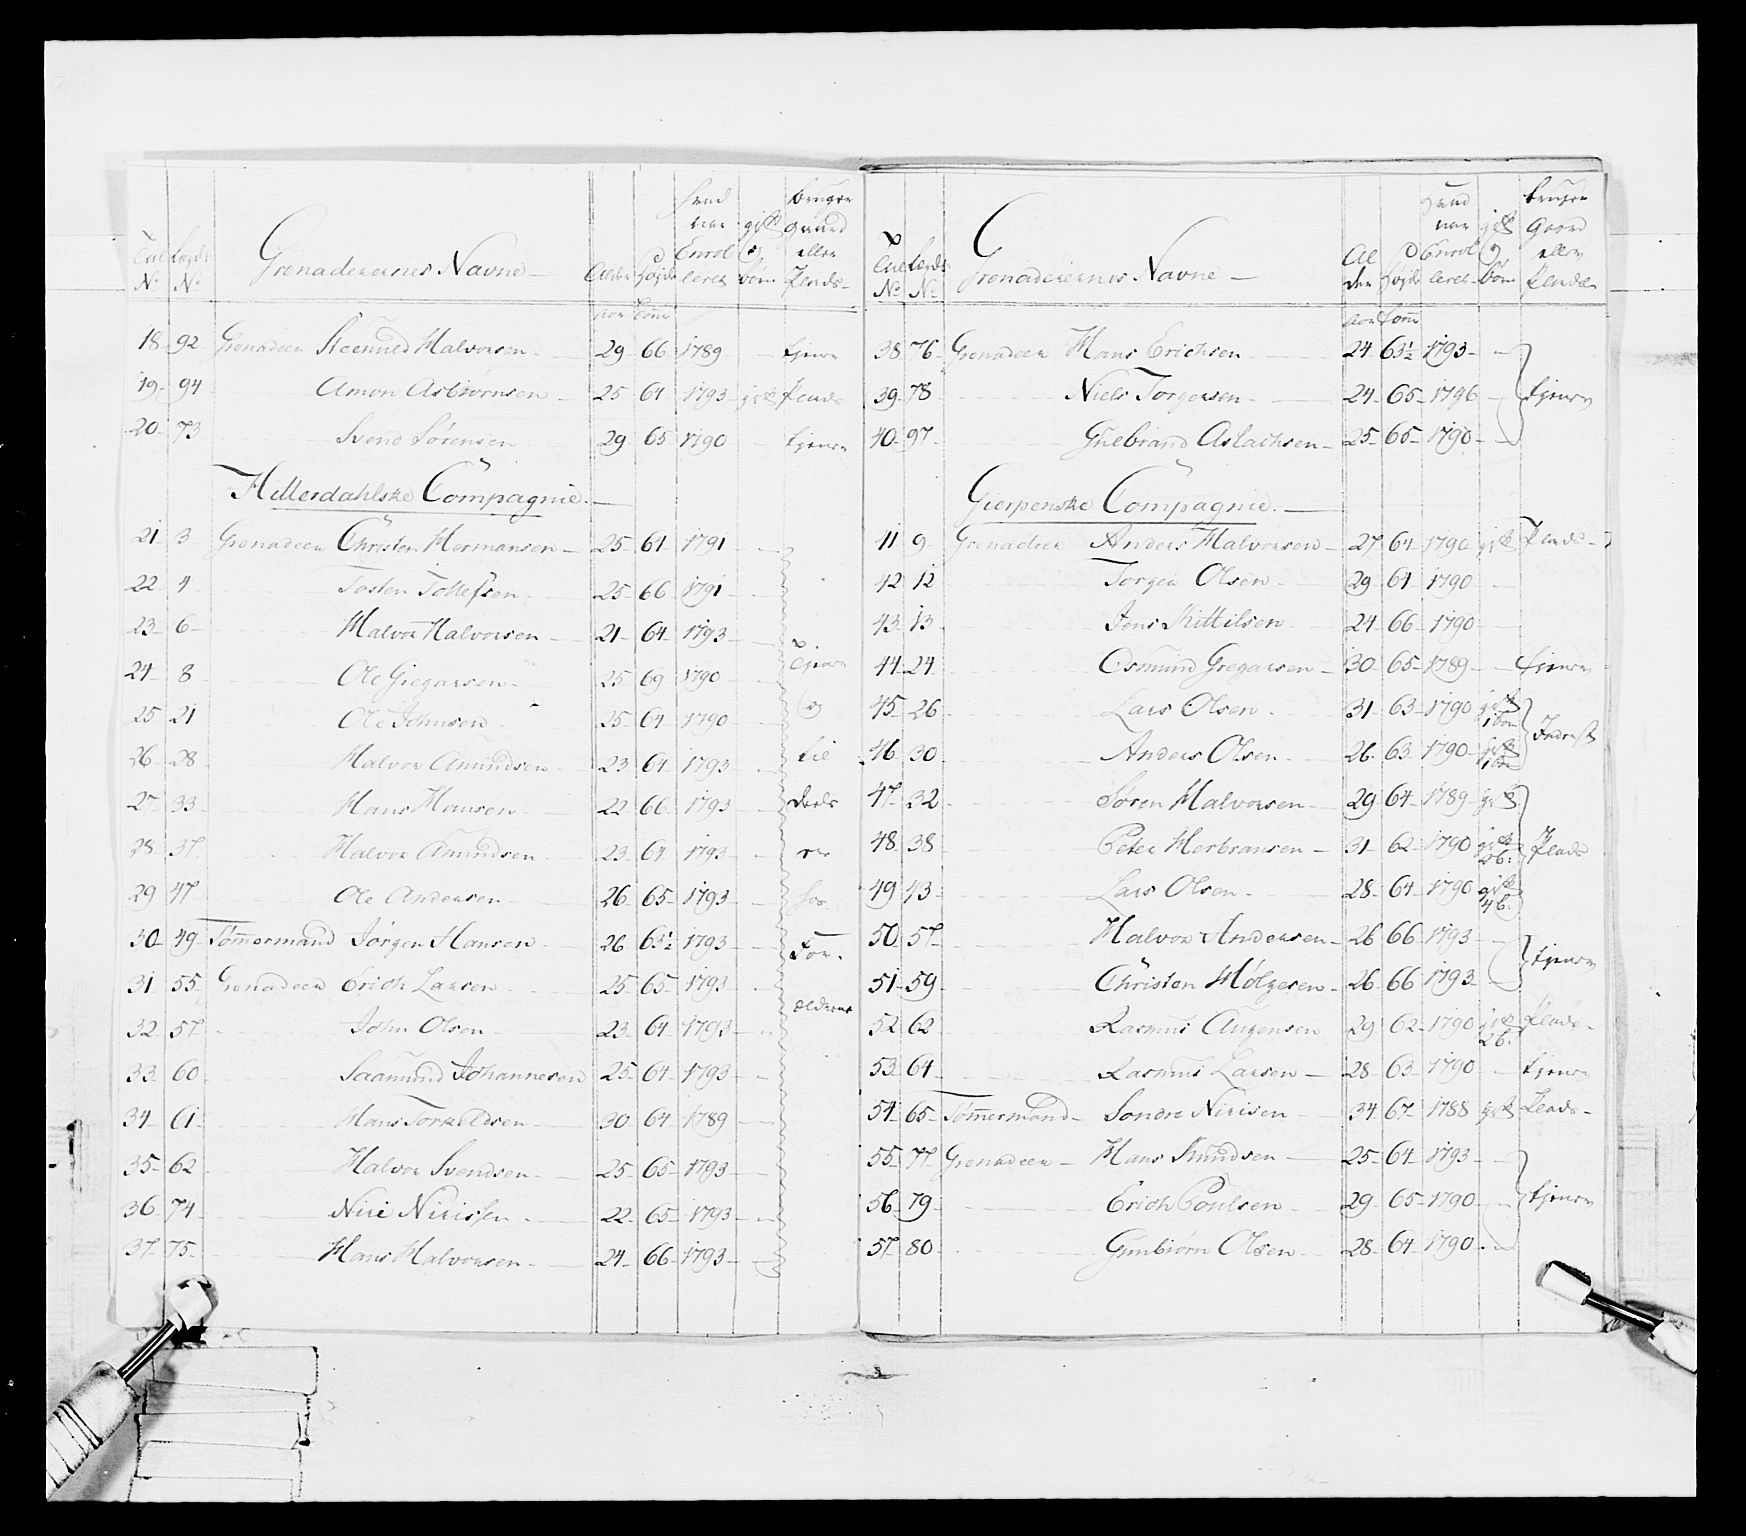 Tal No Lægds No Grenaderernes Navne Alder Høyde hvad aar Enrolleret gift og børn bruger gaard eller Plads
Aar Tomr
18 92 Grenadeer Steenuld Halvorsen 29 66 1789 tjener
19 94 Amon Asbiørnsen 25 64 1793 gift Plads
20 73 Svend Sørensen 29 65 1790 tjener
Hitterdahlske Compagnie.
21 3 Grenadeer Christen Hermansen 25 64 1791
22 4 Tosten Tollefsen 25 66 1791
23 6 Halvor Halvorsen 21 64 1793
24 8 Ole Gregarsen 25 69 1790 tjener
25 21 Ole Johnsen 25 64 1790 og
26 28 Halvor Amundsen 23 64 1793 til
27 33 Hans Hansen 22 66 1793 deels
28 37 Halvor Amundsen 23 64 1793 er
29 47 Ole Andersen 26 65 1793 hos
30 49 Tømmermand Jørgen Hansen 26 63½ 1793 For-
31 55 Grenadeer Erich Larsen 25 65 1793 ældrene
32 57 John Olsen 23 64 1793
33 60 Saamund Johannesen 25 64 1793
34 61 Hans Torkeldsen 30 64 1789
35 62 Halvor Svendsen 25 65 1793
36 74 Niri Nirisen 22 65 1793
37 75 Hans Halvorsen 24 66 1793
Tal No Lægds No Grenaderernes Navne Alder Høyde hvad aar Enrolleret gift og børn bruger Gaard eller Plads
Aar Tomr
38 76 Grenadeer Hans Erichsen 24 63½ 1793
39 78 Niels Torgersen 24 65 1796 tjener
40 97 Gulbrand Aslachsen 25 65 1790
Gierpenske Compagnie.
41 9 Grenadeer Anders Halvorsen 27 64 1790 gift Plads
42 12 Torger Olsen 29 64 1790
43 13 Jens Kittilsen 24 66 1790
44 24 Osmund Gregarsen 30 65 1789 tjener
45 26 Lars Olsen 31 63 1790 gift 1 bør
46 30 Anders Olsen 26 63 1790 gift 1 bør Inderst
47 32 Søren Halvorsen 29 64 1789 gift
48 38 Peter Herbransen 31 62 1790 gift 2 b: Plads
49 43 Lars Olsen 28 64 1790 gift 4 b.
50 57 Halvor Andersen 26 66 1793
51 59 Christen Hølgesen 26 66 1793 tjener
52 62 Rasmus Augensen 29 62 1790 gift 2 b. Plads
53 64 Rasmus Larsen 28 63 1790 tjener
54 65 Tømmermand Sondre Nirisen 34 67 1788 gift Plads
55 77 Grenadeer Hans Knudsen 25 64 1793
56 79 Erich Poulsen 29 65 1790 tjener
57 80 Gunbiørn Olsen 28 64 1790